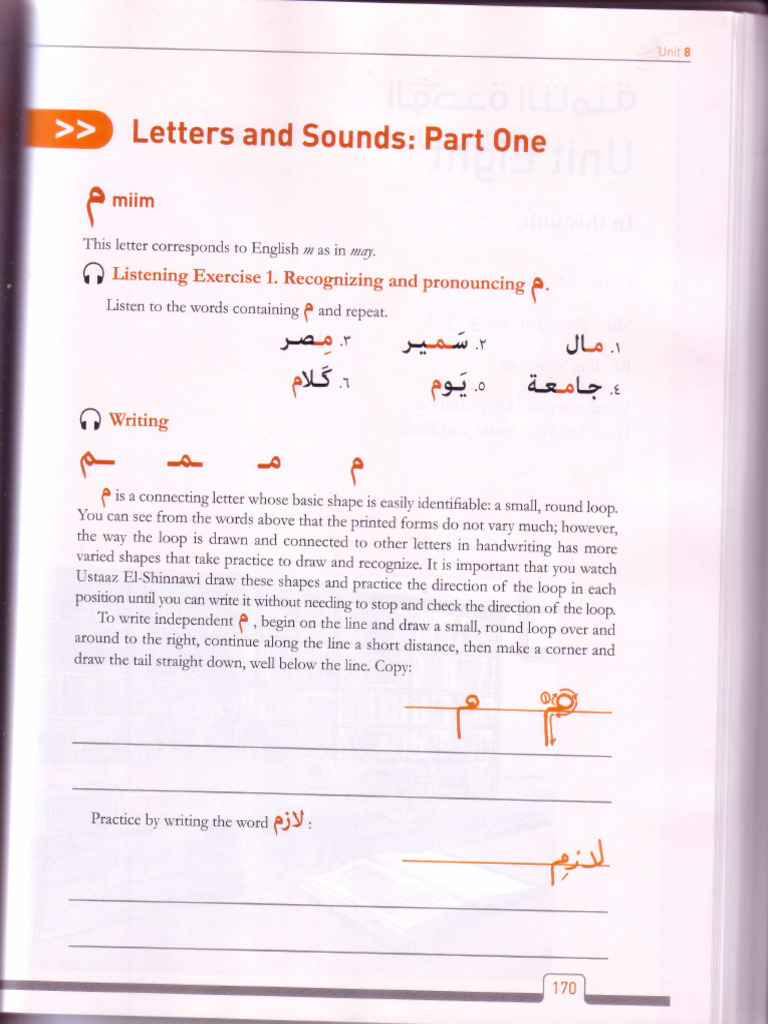 Unit 8
>> Letters and Sounds: Part One
م miim
This letter corresponds to English m as in may.
Listening Exercise 1. Recognizing and pronouncing م.
Listen to the words containing م and repeat.
١. مال ٢. سَمير ٣. مِصر
٤. جامعة ٥. يَوم ٦. كَلام
Writing
م مـ ـمـ ـم
م is a connecting letter whose basic shape is easily identifiable: a small, round loop.
You can see from the words above that the printed forms do not vary much; however,
the way the loop is drawn and connected to other letters in handwriting has more
varied shapes that take practice to draw and recognize. It is important that you watch
Ustaaz El-Shinnawi draw these shapes and practice the direction of the loop in each
position until you can write it without needing to stop and check the direction of the loop.
To write independent م , begin on the line and draw a small, round loop over and
around to the right, continue along the line a short distance, then make a corner and
draw the tail straight down, well below the line. Copy:
م م
Practice by writing the word لازم :
لازِم
170